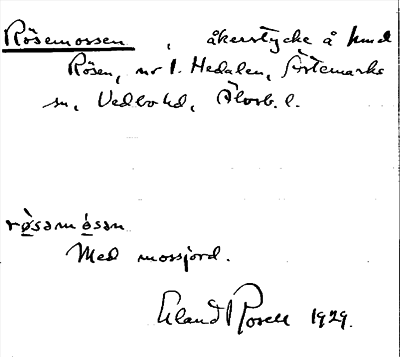 Rösemossen, åkerstycke å hmd
Rösen, nr 1. Hedalen, Sörtemarks
sn, Vedbo hd, Älvsb. l.
rø̀samósan
Med mossjord.
Erland Rosell 1929.